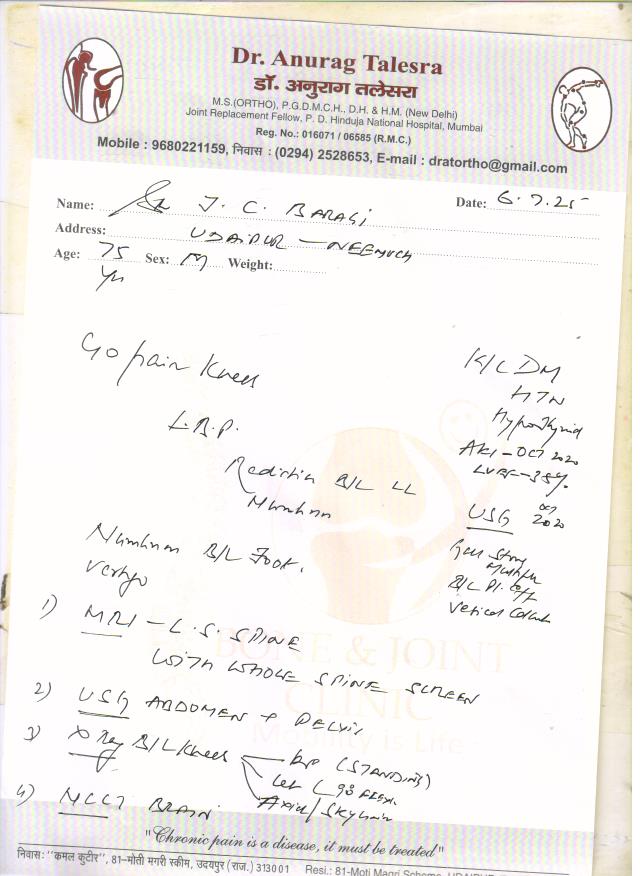 Dr. Anurag Talesra
डॉ. अनुराग तलेसरा
M.S.(ORTHO), P.G.D.M.C.H., D.H. & H.M. (New Delhi)
Joint Replacement Fellow, P. D. Hinduja National Hospital, Mumbai
Reg. No.: 016071 / 06585 (R.M.C.)
Mobile : 9680221159, निवास : (0294) 2528653, E-mail : dratortho@gmail.com
Name: J. C. Date: 6.7.25
Address: UDAIPUR - NEEMUCH
Age: 75 Yr Sex: M Weight:
pain Knees
L.B.P.
B/L LL
Numbness B/L Foot.
Vertigo
K/C DM
HTN
Hypothyroid
AKI - OCT 2020
LVEF - 38%
USG Oct 2020
Gall Stone
B/L Pl. Eff
Vesical Calculi
1) MRI - L.S. SPINE
WITH WHOLE SPINE SCREEN
2) USG ABDOMEN + PELVIS
3) X Ray B/L Knees AP (STANDING)
Lat (90 FLEX.
Axial / Skyline
4) NCCT BRAIN
BONE & JOINT
CLINIC
Mobility is Life
"Chronic pain is a disease, it must be treated"
निवास: "कमल कुटीर", 81-मोती मगरी स्कीम, उदयपुर (राज.) 313001 Resi.: 81-Moti Magri Scheme,